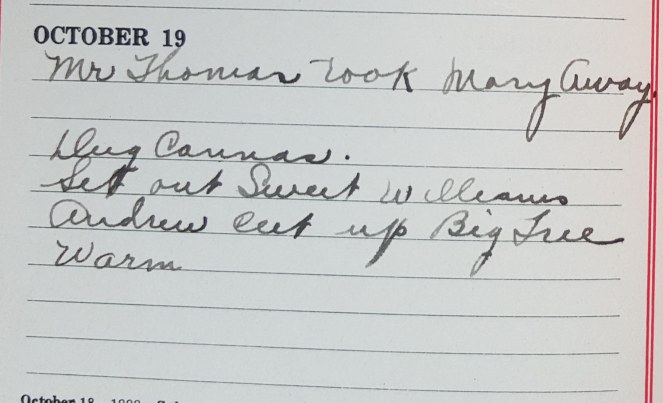 OCTOBER 19
Mr Thomas took Mary Away.
Dug Cannas.
Set out Sweet Williams
Andrew cut up Big Tree
Warm
October 18